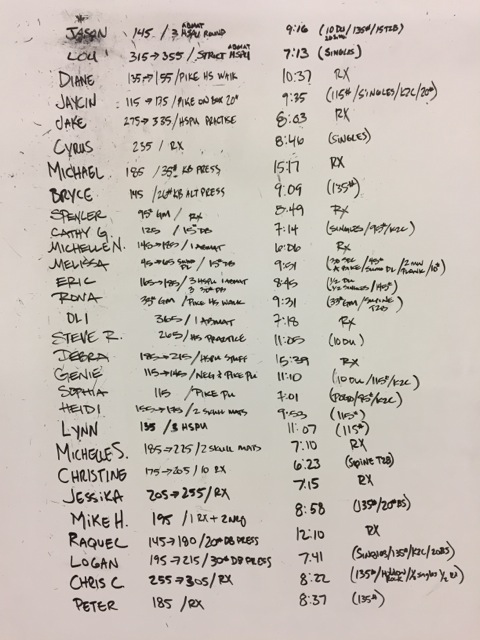 JASON 145 / 3 ABMAT HSPU ROUND 9:16 (10 DU / 135# / 15 T2B)
LOU 315→355 / STRICT ABMAT HSPU 7:13 (SINGLES)
DIANE 135→155 / PIKE HS WALK 10:37 RX
JAYCIN 115→175 / PIKE ON BOX 20" 9:35 (115# / SINGLES / K2C / 20")
JAKE 275→335 / HSPU PRACTISE 8:03 RX
CYRUS 235 / RX 8:46 (SINGLES)
MICHAEL 185 / 35# KB PRESS 15:17 RX
BRYCE 145 / 26# KB ALT PRESS 9:09 (135#)
SPENCER 95# GM / RX 8:49 RX
CATHY G. 125 / 15# DB 7:14 (SINGLES / 95# / K2C)
MICHELLE N. 145→185 / 1 ABMAT 6:06 RX
MELISSA 45→65 SUMO DL / 15# DB 9:51
ERIC 165→185 / 3 HSPU 1 ABMAT 8:45
RONA 35# GM / PIKE HS WALK 9:31 (33# GM / SUPINE T2B)
OLI 365 / 1 ABMAT 7:18 RX
STEVE R. 265 / HS PRACTICE 11:05 (10 DU)
DEBRA 185→215 / HSPU STUFF 15:39 RX
GENIE 115→145 / NEG & PIKE PU 11:10 (10 DU / 115# / K2C)
SOPHIA 115 / PIKE PU 7:01 (POGO / 95# / K2C)
HEIDI 155→175 / 2 SKULL MATS 9:53 (115#)
LYNN 135 / 3 HSPU 11:07 (115#)
MICHELLE S. 185→225 / 2 SKULL MATS 7:10 RX
CHRISTINE 175→205 / 10 RX 6:23 (SUPINE T2B)
JESSIKA 205→255 / RX 7:15 RX
MIKE H. 195 / 1 RX + 2 NEG 8:58 (135# / 20" BS)
RAQUEL 145→190 / 20# DB PRESS 12:10 RX
LOGAN 195→215 / 30# DB PRESS 7:41 (SINGLES / 135# / K2C / 20 BS)
CHRIS C. 255→305 / RX 8:22 (135# / HOLLOW ROCK / ½ SINGLES ½ RX)
PETER 185 / RX 8:37 (135#)